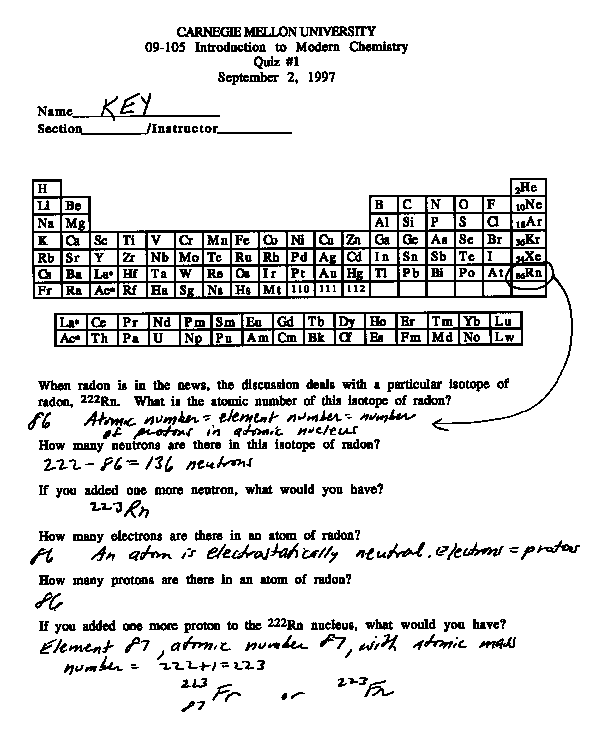 CARNEGIE MELLON UNIVERSITY
09-105 Introduction to Modern Chemistry
Quiz #1
September 2, 1997
Name KEY
Section /Instructor
H 2He
Li Be B C N O F 10Ne
Na Mg Al Si P S Cl 18Ar
K Ca Sc Ti V Cr Mn Fe Co Ni Cu Zn Ga Ge As Se Br 36Kr
Rb Sr Y Zr Nb Mo Tc Ru Rh Pd Ag Cd In Sn Sb Te I 54Xe
Cs Ba La* Hf Ta W Re Os Ir Pt Au Hg Tl Pb Bi Po At 86Rn
Fr Ra Ac* Rf Ha Sg Ns Hs Mt 110 111 112
La* Ce Pr Nd Pm Sm Eu Gd Tb Dy Ho Er Tm Yb Lu
Ac* Th Pa U Np Pu Am Cm Bk Cf Es Fm Md No Lw
When radon is in the news, the discussion deals with a particular isotope of
radon, 222Rn. What is the atomic number of this isotope of radon?
86 Atomic number = element number = number
of protons in atomic nucleus
How many neutrons are there in this isotope of radon?
222 - 86 = 136 neutrons
If you added one more neutron, what would you have?
223Rn
How many electrons are there in an atom of radon?
86 An atom is electrostatically neutral. electrons = protons
How many protons are there in an atom of radon?
86
If you added one more proton to the 222Rn nucleus, what would you have?
Element 87, atomic number 87, with atomic mass
number = 222+1=223
223 87 Fr or 223Fr